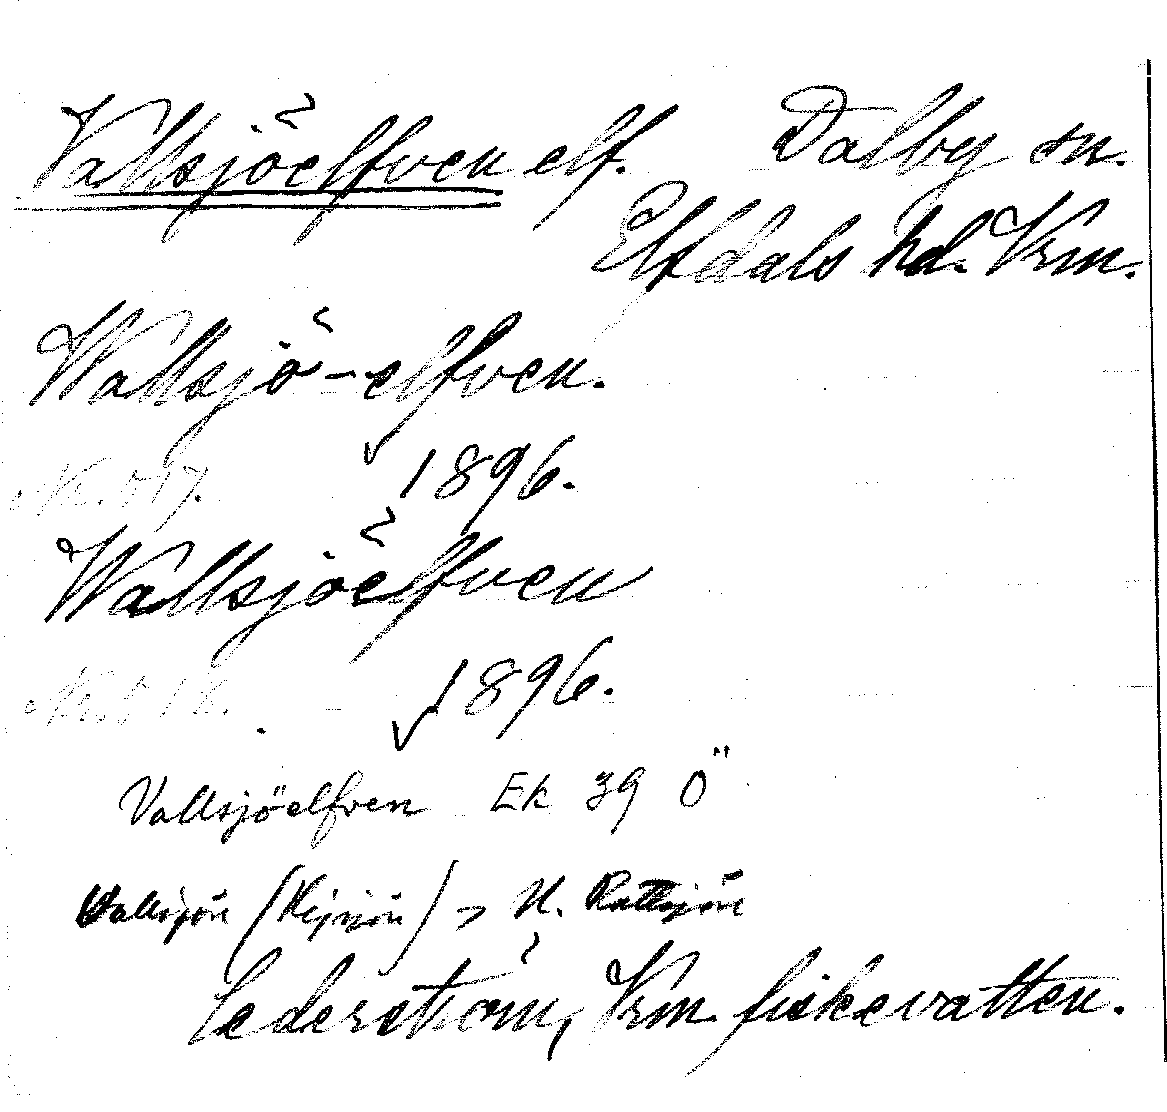 Vallsjöelfven elf. Dalby sn.
Elfdals hd. Vrm.
Wallsjö-elfven.
No. 517. 1896.
Wallsjöelfven
No. 518. 1896.
Vallsjöelfven Ek 39 Ö
Vallsjön ( ) > N. Rattsjön
Cederström, Vrm. fiskevatten.